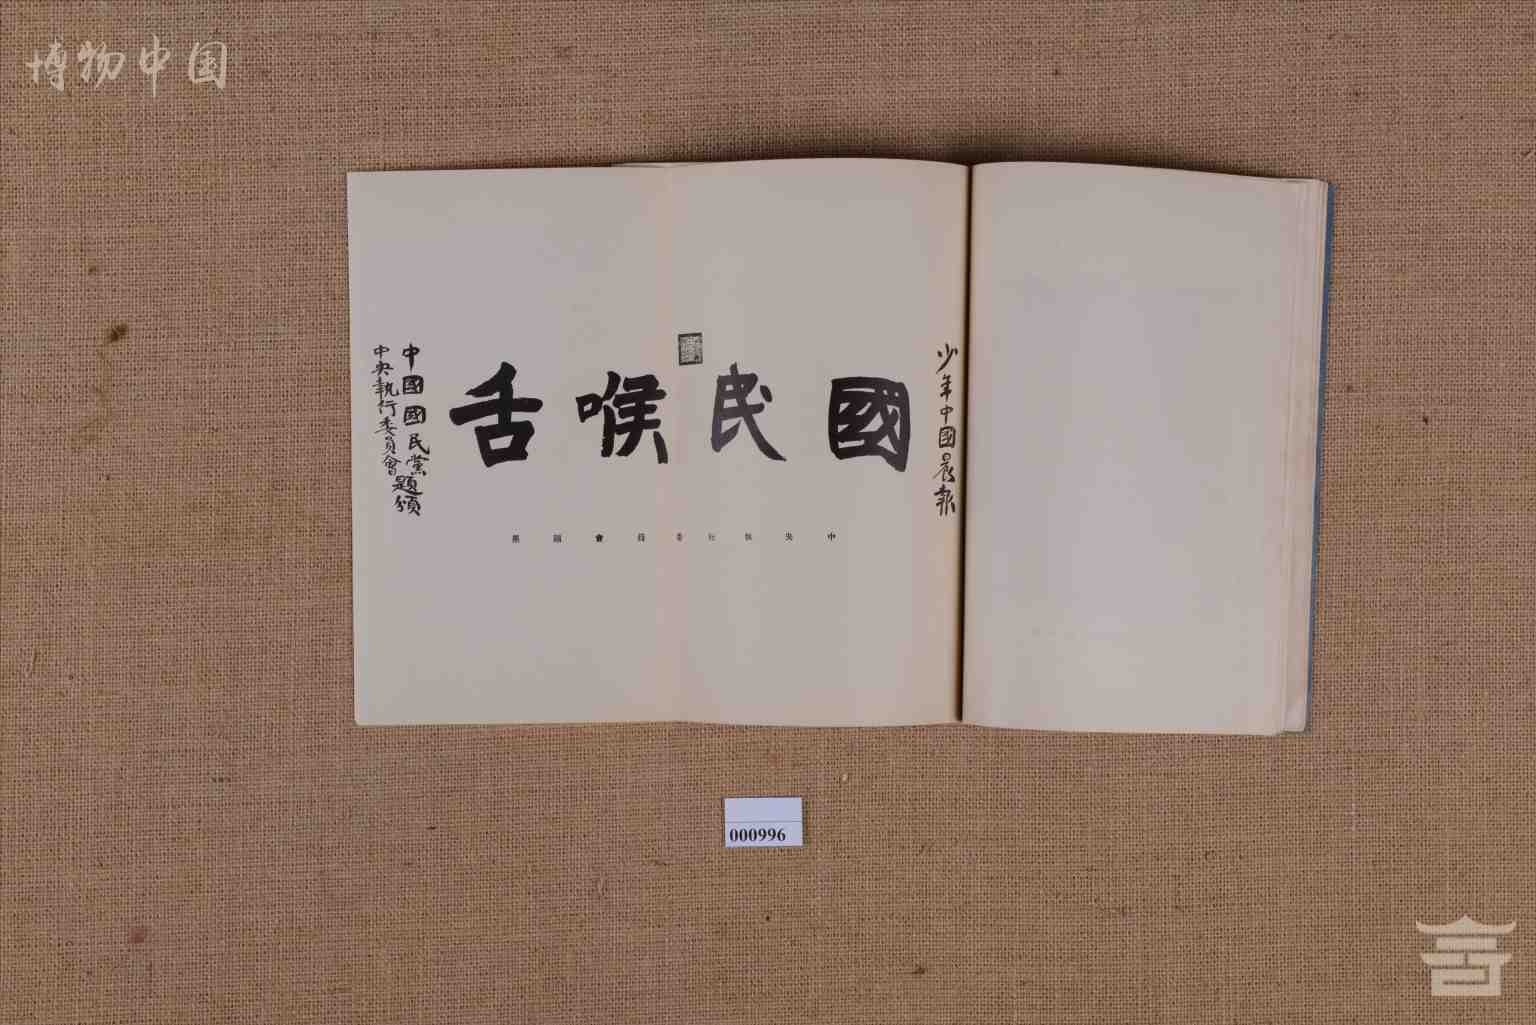 博物中国
少年中國晨報
國民喉舌
中國國民黨題頒
中央執行委員會
中央執行委員會題頒
000996